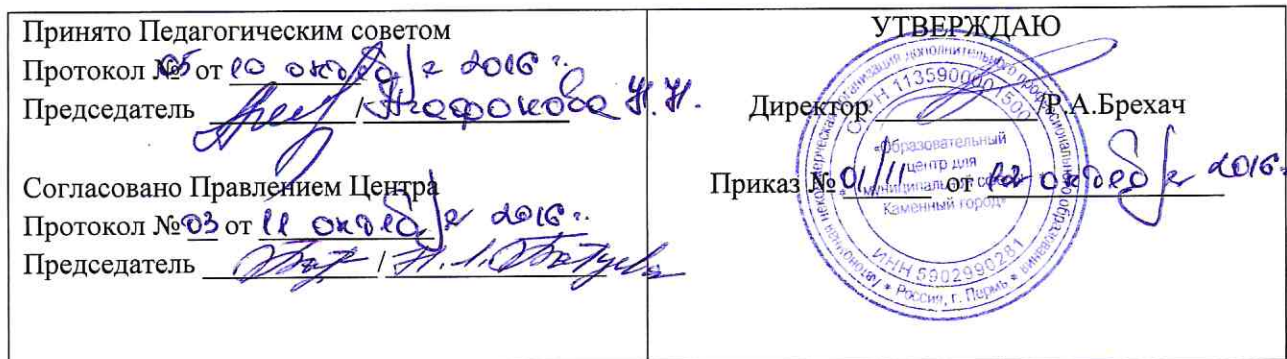 Принято Педагогическим советом
Протокол №05 от 10 октября 2016 г.
Председатель / Агафонова Н.Н.
Согласовано Правлением Центра
Протокол №03 от 11 октября 2016 г.
Председатель / Н.Л.
УТВЕРЖДАЮ
Директор /Р.А.Брехач
Приказ № 01/11 от 12 октября 2016г.
Автономная некоммерческая организация дополнительного профессионального образования
ОГРН 1135900001500
«Образовательный
центр для
муниципальной сферы
Каменный город»
ИНН 5902990281
* Россия, г. Пермь *